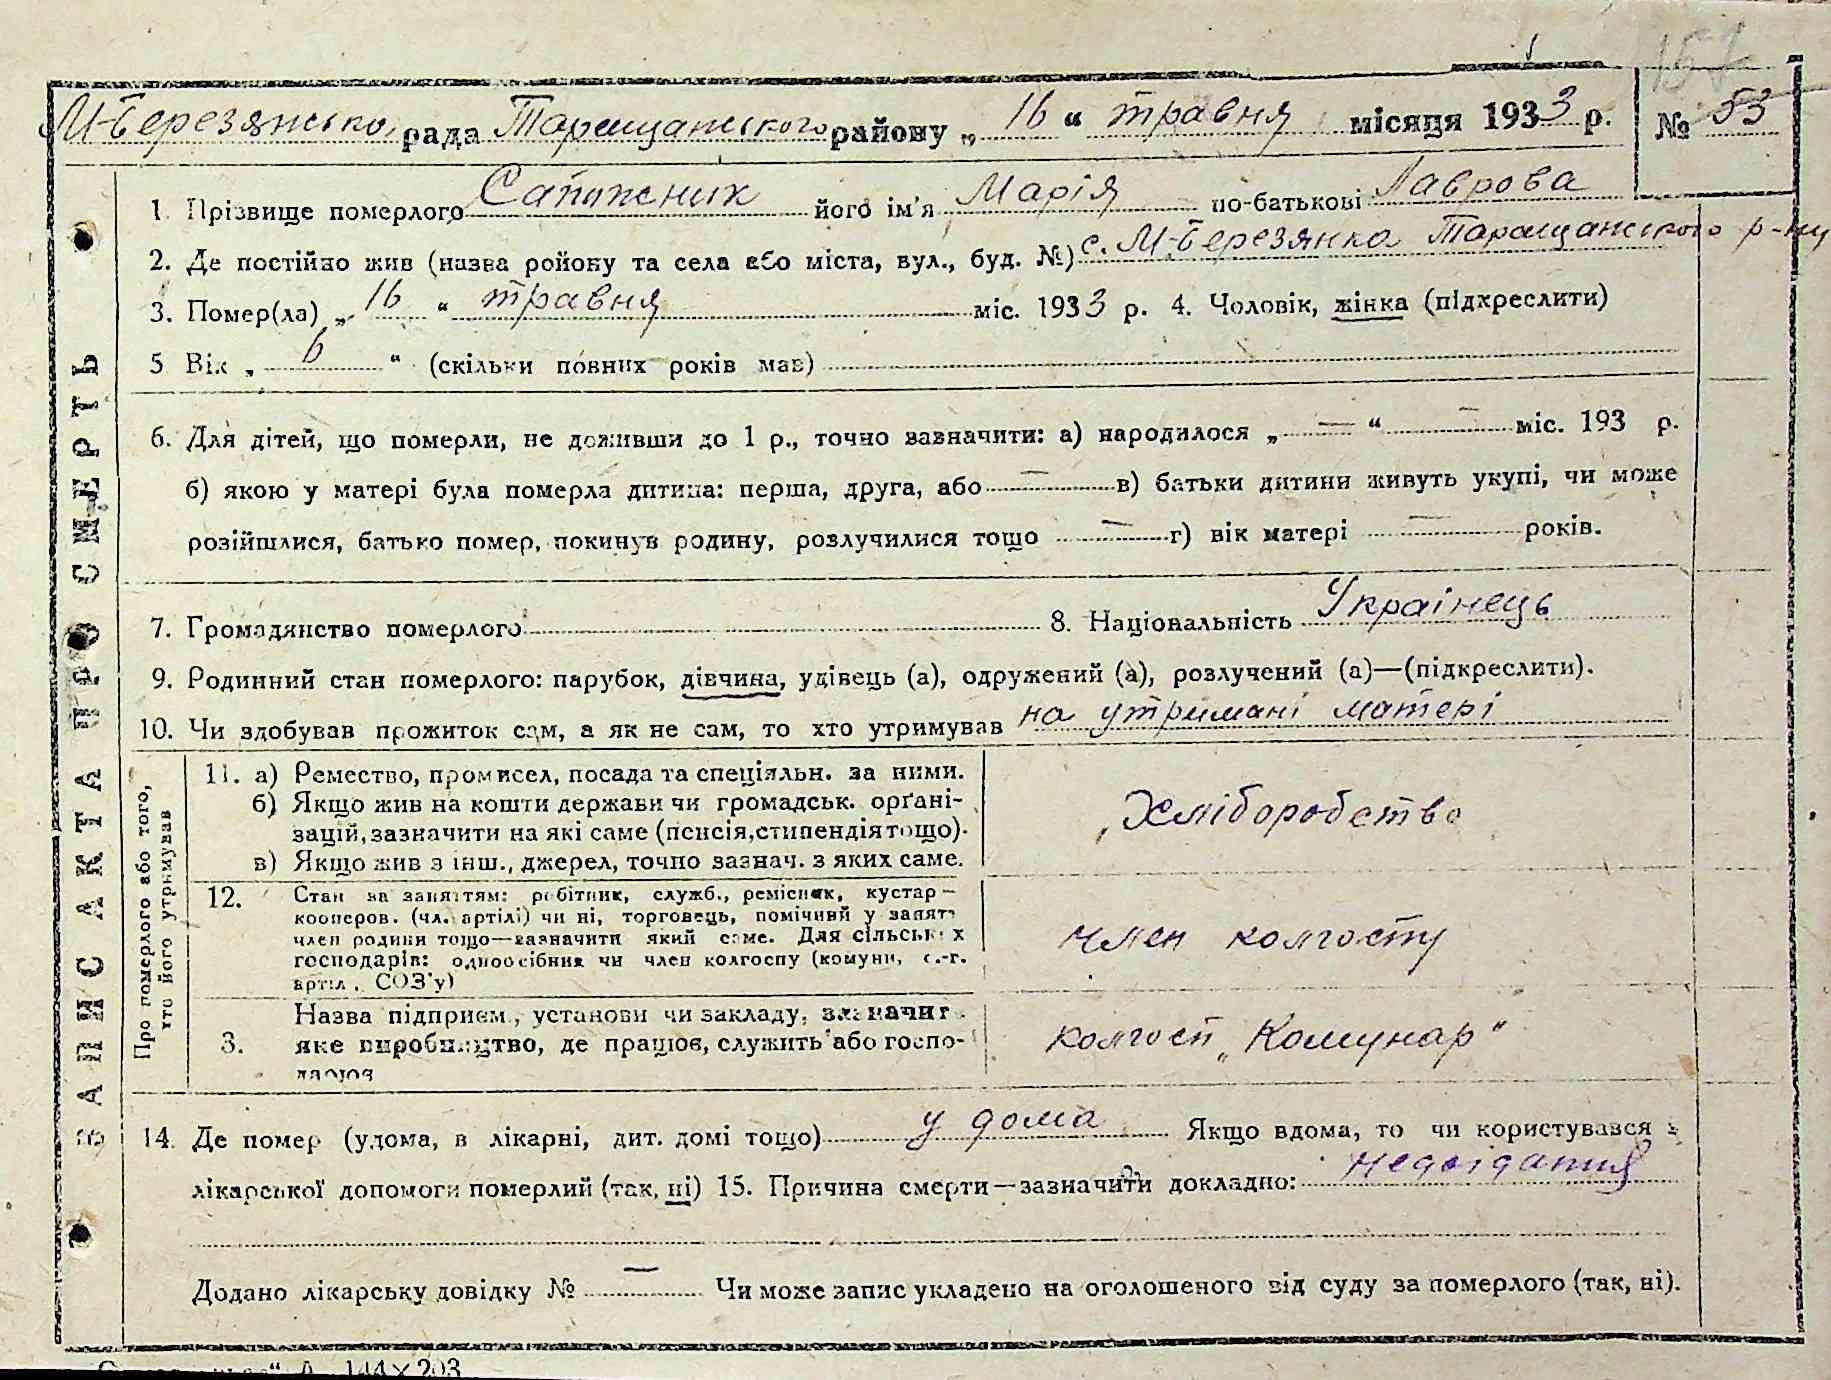 157
М-Березянська рада Таращанського району „ 16 “ травня місяця 1933 р. № 53
ЗАПИС АКТА ПРО СМЕРТЬ
1. Прізвище померлого Сапожник його ім'я Марія по-батькові Лаврова
2. Де постійно жив (назва ройону та села або міста, вул., буд. №) с. М-Березянка Таращанського р-ну
3. Помер(ла) „ 16 “ травня міс. 1933 р. 4. Чоловік, жінка (підхреслити)
5 Вік „ 6 “ (скільки повних років мав)
6. Для дітей, що померли, не доживши до 1 р., точно зазначити: а) народилося „ — “ — міс. 193 р.
б) якою у матері була померла дитина: перша, друга, або — в) батьки дитини живуть укупі, чи може
розійшлися, батько помер, покинув родину, розлучилися тощо — г) вік матері — років.
7. Громадянство померлого 8. Національність Українець
9. Родинний стан померлого: парубок, дівчина, удівець (а), одружений (а), розлучений (а)—(підкреслити).
10. Чи здобував прожиток сам, а як не сам, то хто утримував на утримані матері
Про померлого або того,
хто його утримував
11. а) Ремество, промисел, посада та спеціяльн. за ними.
б) Якщо жив на кошти держави чи громадськ. орґані-
зацій, зазначити на які саме (пенсія, стипендія тощо).
в) Якщо жив з інш., джерел, точно зазнач. з яких саме.
Хліборобство
12. Стан за заняттям: робітник, служб., ремісник, кустар—
кооперов. (чл. артілі) чи ні, торговець, помічний у занят.
член родини тощо—зазначити який саме. Для сільських
господарів: одноосібник чи член колгоспу (комуни, с.-г.
артіл., СОЗ'у)
член колгоспу
3. Назва підприєм., установи чи закладу, зазначит.
яке виробництво, де працюв, служить або госпо-
дарюв
колгосп „Комунар“
14. Де помер (удома, в лікарні, дит. домі тощо) у дома Якщо вдома, то чи користувався з
лікарської допомоги померлий (так, ні) 15. Причина смерти—зазначити докладно: недоїдання
Додано лікарську довідку № — Чи може запис укладено на оголошеного від суду за померлого (так, ні).
А 144×203